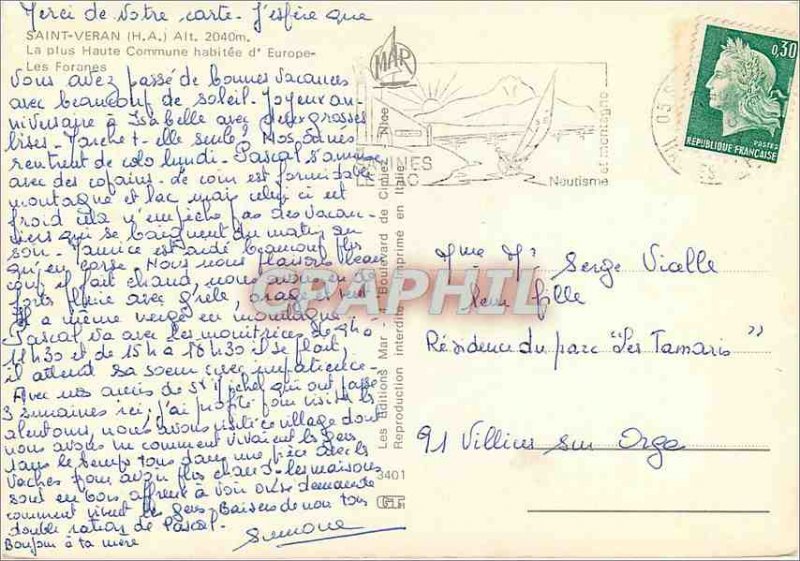 Merci de votre carte. J'espère que
SAINT-VERAN (H.A.) Alt. 2040m.
La plus Haute Commune habitée d'Europe-
Les Foranes
vous avez passé de bonnes vacances
avec beaucoup de soleil. Joyeux an-
niversaire à Isabelle avec deux grosses
bises. Marche t-elle seule? Nos aînés
rentrent de colo lundi. Pascal s'amuse
avec des copains. Le coin est formidable
montagne et lac mais celui ci est
froid cela n'empêche pas des vacan-
ciers qui se baignent du matin au
soir. Maurice est aidé beaucoup plus
qu'en corse. Nous nous plaisons beau
coup il fait chaud, nous avons eu de
forts pluie avec grêle, orage et vent
Il a même neigé en montagne
Pascal va avec les monitrices de 9h à
11h30 et de 15h à 18h30 il se plait,
il attend sa soeur avec impatience.
Avec nos amis de St Michel qui ont passé
3 semaines ici, j'ai profité pour visiter les
alentours, nous avons visité ce village dont
nous avons vu comment vivaient les gens
dans le temps tous dans une pièce avec les
vaches pour avoir plus chaud. les maisons
sont en bois affreux à voir on se demande
comment vivent les gens. Baisers de nous tous
double ration de Pascal.
Bonjour à ta mère
Simone
MAR
Nautisme
et montagne
0,30
POSTES
REPUBLIQUE FRANÇAISE
Les Editions Mar - 4 Boulevard de Cimiez - Nice
Reproduction interdite - Imprimé en Italie
3401
CAPHIL
Mme Mr Serge Vialle
leur fille
Résidence du parc "Les Tamaris"
91 Villiers sur Orge